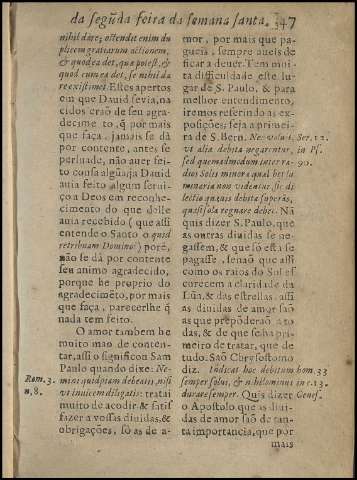 da segũda feira da somana santa. 347
nihil dare; ostendat enim du
plicem gratiarum actionem,
& quod ea det, que potest, &
quod cum ea det, se nihil da
re existimet. Estes apertos
em que Dauid se via, na
cidos erão de seu agra-
decimẽto, q̃ por mais
que faça, jamais se dá
por contente, antes se
persuade, não auer fei-
to cousa algũa; ja Dauid
auia feito algum serui-
ço a Deos em reconhe-
cimento do que delle
auia recebido (que assi
entende o Santo o quid
retribuam Domino:) porẽ,
não se dá por contente
seu animo agradecido,
porque he proprio do
agradecimẽto, por mais
que faça, parecerlhe q̃
nada tem feito.
O amor tambem he
muito mao de conten-
tar, assi o significou Sam
Paulo quando dixe: Ne-
Rom. 3. mini quidquam debeatis, nisi
n, 8. vt inuicem diligatis: tratai
muito de acodir & satis
fazer a vossas diuidas, &
obrigações, só as de a-
mor, por mais que pa-
gueis, sempre aueis de
ficar a deuer. Tem mui-
ta difficuldade este lu-
gar de S. Paulo, & para
melhor entendimento,
iremos referindo as ex-
posições; seja a primei-
ra de S. Bern. Ser. 12.
vt alia debita negarentur, in Ps.
sed quemadmodum inter ra- 90.
dios Solis minora quæl bet lu
minaria non videntur, sic di
lectio quasi debita superās,
quasi sola regnare debet. Nã
quis dizer S. Paulo, que
as outras diuidas se ne-
gassem, & que só esta se
pagasse, senaõ que assi
como os raios do Sol es
curecem a claridade da
Lũa, & das estrellas, assi
as diuidas de amor saõ
as que prepõderaõ a to
das, & de que se ha pri-
meiro de tratar, que de
tudo. Saõ Chrysostomo
diz. Indicat hoc debitum hom. 33
semper solui, & nihilominus in c. 13.
durare semper. Quis dizer Genes.
o Apostolo, que as diui-
das de amor saõ de tan-
ta importancia, que por
mais